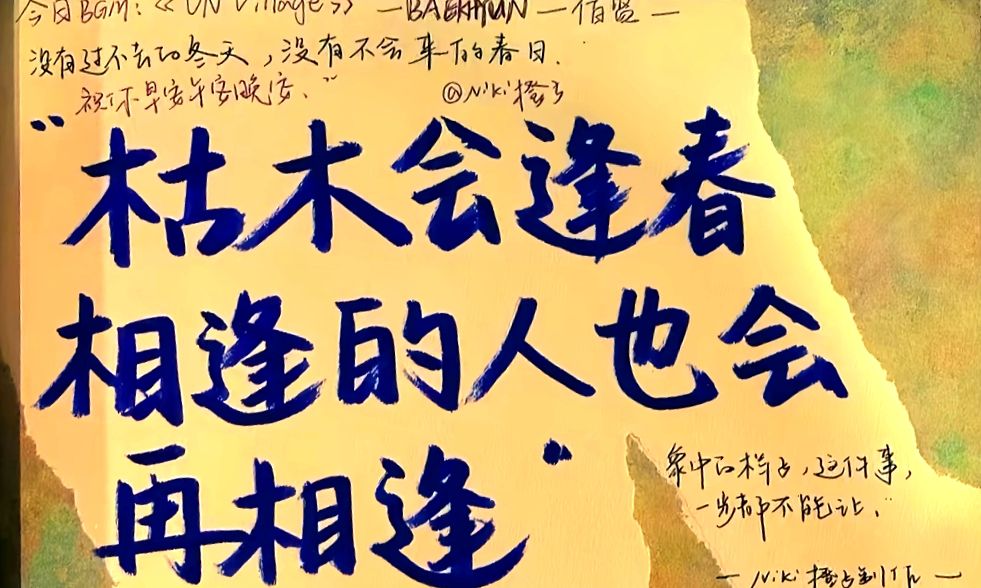 今日BGM:《UN Village》—BAEKHYUN—伯贤—
没有过不去的冬天,没有不会来的春日.
祝你早安午安晚安.
@Niki橙子
“枯木会逢春
相逢的人也会
再相逢”
象中的样子,这件事,
一步都不能让.”
—Niki橙子制作—